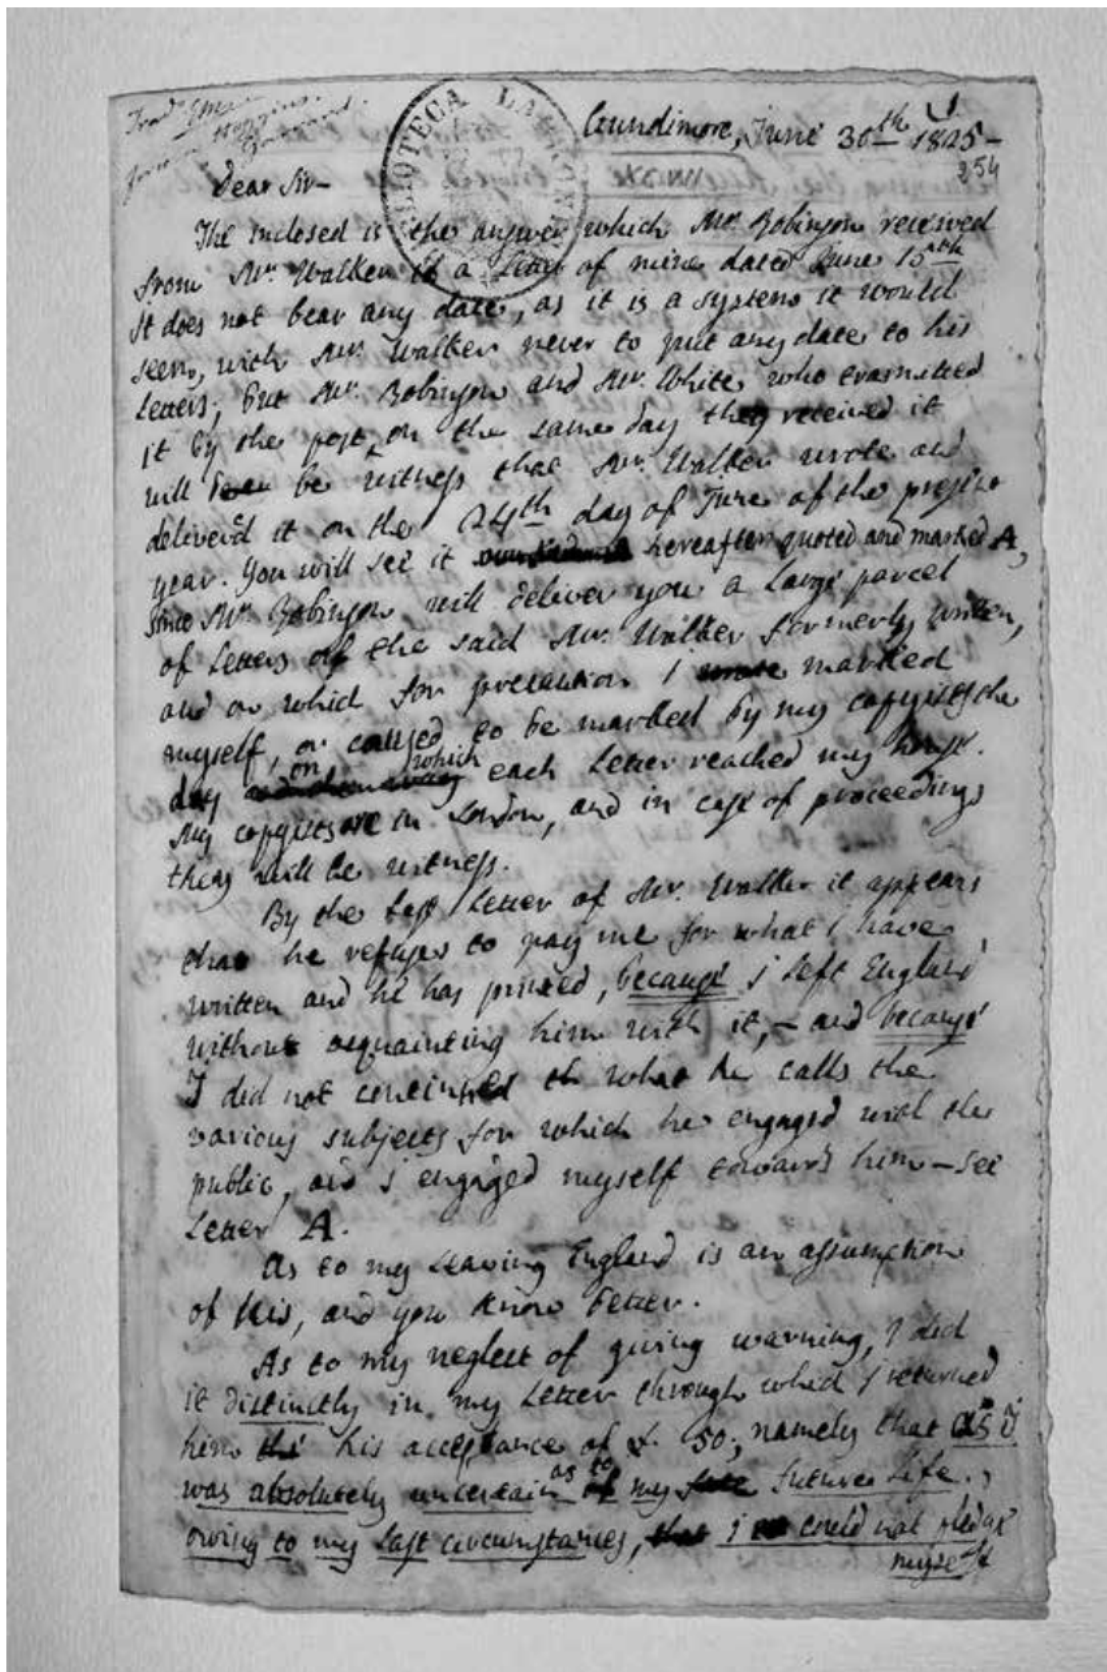 Gundimore, June 30th 1825 –
254
Dear Sir –
The inclosed is the answer which Mr. Robinson received
from Mr. Walker to a Letter of mine dated June 15th
It does not bear any date, as it is a system it would
seem, with Mr. Walker never to put any date to his
Letters; but Mr. Robinson and Mr. White who transmitted
it by the post, on the same day they received it
will be witness that Mr. Walker wrote and
deliver'd it on the 24th day of June of the present
year. You will see it hereafter quoted and marked A,
since Mr. Robinson will deliver you a large parcel
of Letters of the said Mr. Walker formerly written,
and on which for precaution I marked
myself, or caused to be marked by my copyists the
day on which each Letter reached my house.
My copyists are in London, and in case of proceedings
they will be witness.
By the last Letter of Mr. Walker it appears
that he refuses to pay me for what I have
written and he has printed, because I left England
without acquainting him with it, – and because
I did not continued the what he calls the
various subjects for which he engaged with the
public, and I engaged myself towards him – see
Letter A.
As to my Leaving England is an assumption
of his, and you know better.
As to my neglect of giving warning, I did
it distinctly in my Letter through which I returned
him his acceptance of £. 50; namely that as I
was absolutely uncertain as to my future Life,
owing to my last circumstances, I could not pledge
myself